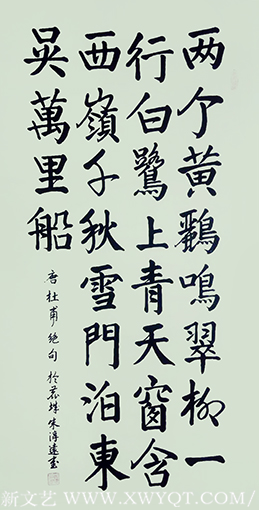 两个黄鸝鳴翠柳一
行白鷺上青天窗含
西嶺千秋雪門泊東
吴萬里船
唐杜甫绝句
新文艺 WWW.XWYQT.COM